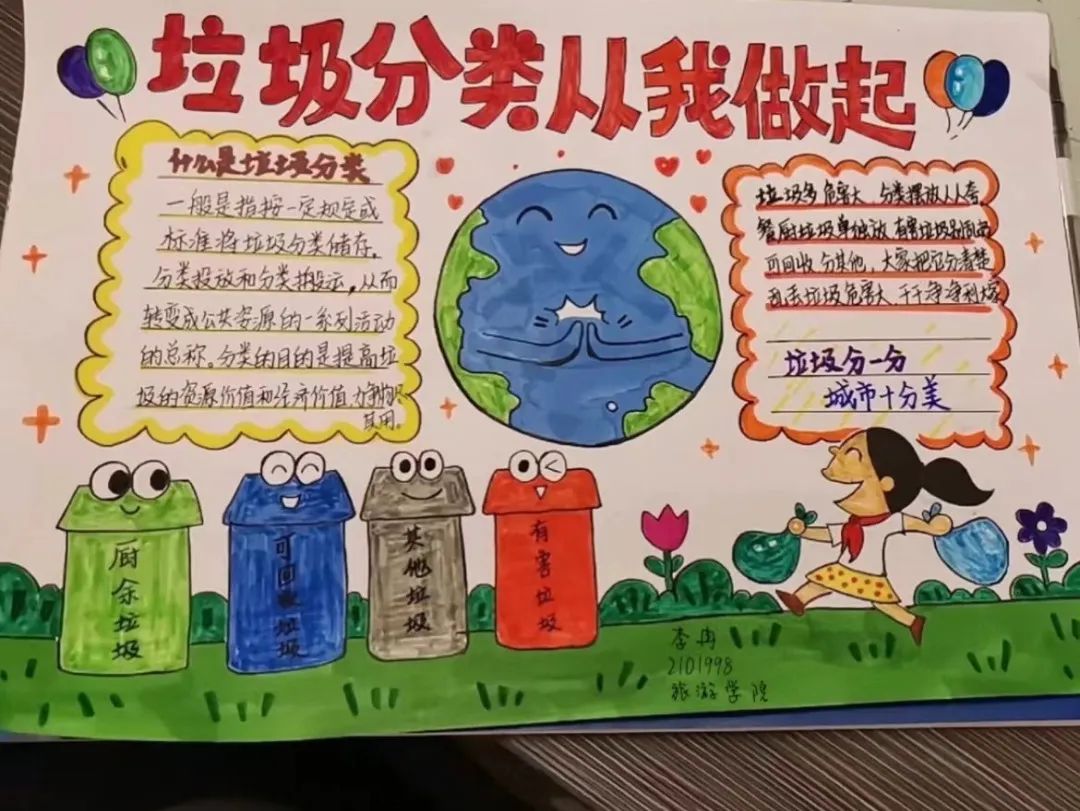 垃圾分类从我做起
什么是垃圾分类
一般是指按一定规定或
标准将垃圾分类储存,
分类投放和分类搬运,从而
转变成公共资源的一系列活动
的总称。分类的目的是提高垃
圾的资源价值和经济价值,力争物尽
其用。
垃圾多危害大,分类摆放人人夸
餐厨垃圾单独放,有害垃圾别
可回收分其他,大家把它分清楚
乱丢垃圾危害大,干干净净利大家
垃圾分一分
城市十分美
厨余垃圾
可回收垃圾
其他垃圾
有害垃圾
李冉
2101998
旅游学院